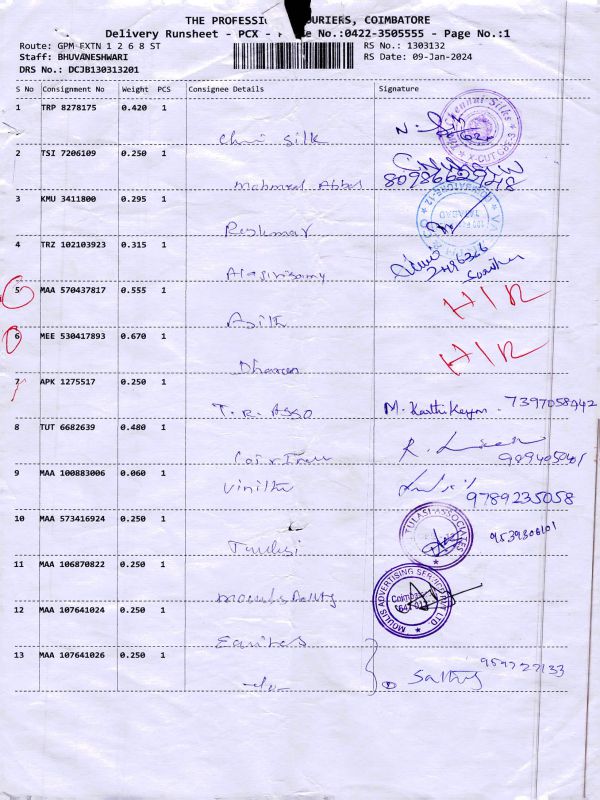 THE PROFESSI OURIERS, COIMBATORE
Delivery Runsheet - PCX - e No.:0422-3505555 - Page No.:1
Route: GPM-EXTN 1 2 6 8 ST
RS No.: 1303132
Staff: BHUVANESHWARI
RS Date: 09-Jan-2024
DRS No.: DCJB130313201
S No Consignment No Weight PCS Consignee Details Signature
1 TRP 8278175 0.420 1
Silk
2 TSI 7206109 0.250 1
Mahmed Abbas
3 KMU 3411800 0.295 1
4 TRZ 102103923 0.315 1
Alagirisamy
5 MAA 570437817 0.555 1
Asilk
6 MEE 530417893 0.670 1
Dharan
7 APK 1275517 0.250 1
T.R. Asso M. Karthikeyan. 7397058442
8 TUT 6682639 0.480 1
9 MAA 100883006 0.060 1
Vinitha 9789235058
10 MAA 573416924 0.250 1
TULASI ASSOCIATES
Tulasi
11 MAA 106870822 0.250 1
MOULIS ADVERTISING SERVICE PVT LTD
Moulis Advtg
12 MAA 107641024 0.250 1
Equites
13 MAA 107641026 0.250 1
Sathis